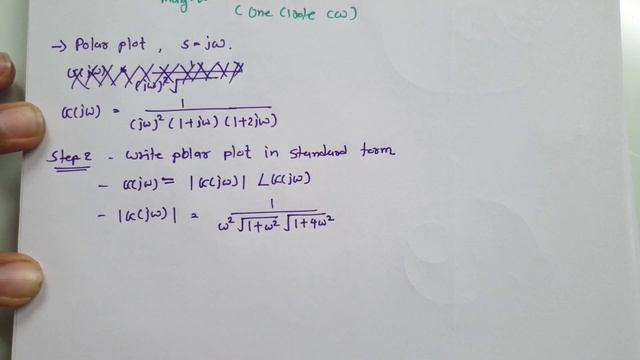 (One Circle CW)
→ Polar plot , s = jω.
G(jω) = 1 / (jω)² (1+jω) (1+2jω)
Step 2 - write polar plot in standard term
- G(jω) = |G(jω)| ∠G(jω)
- |G(jω)| = 1 / ω² √1+ω² √1+4ω²